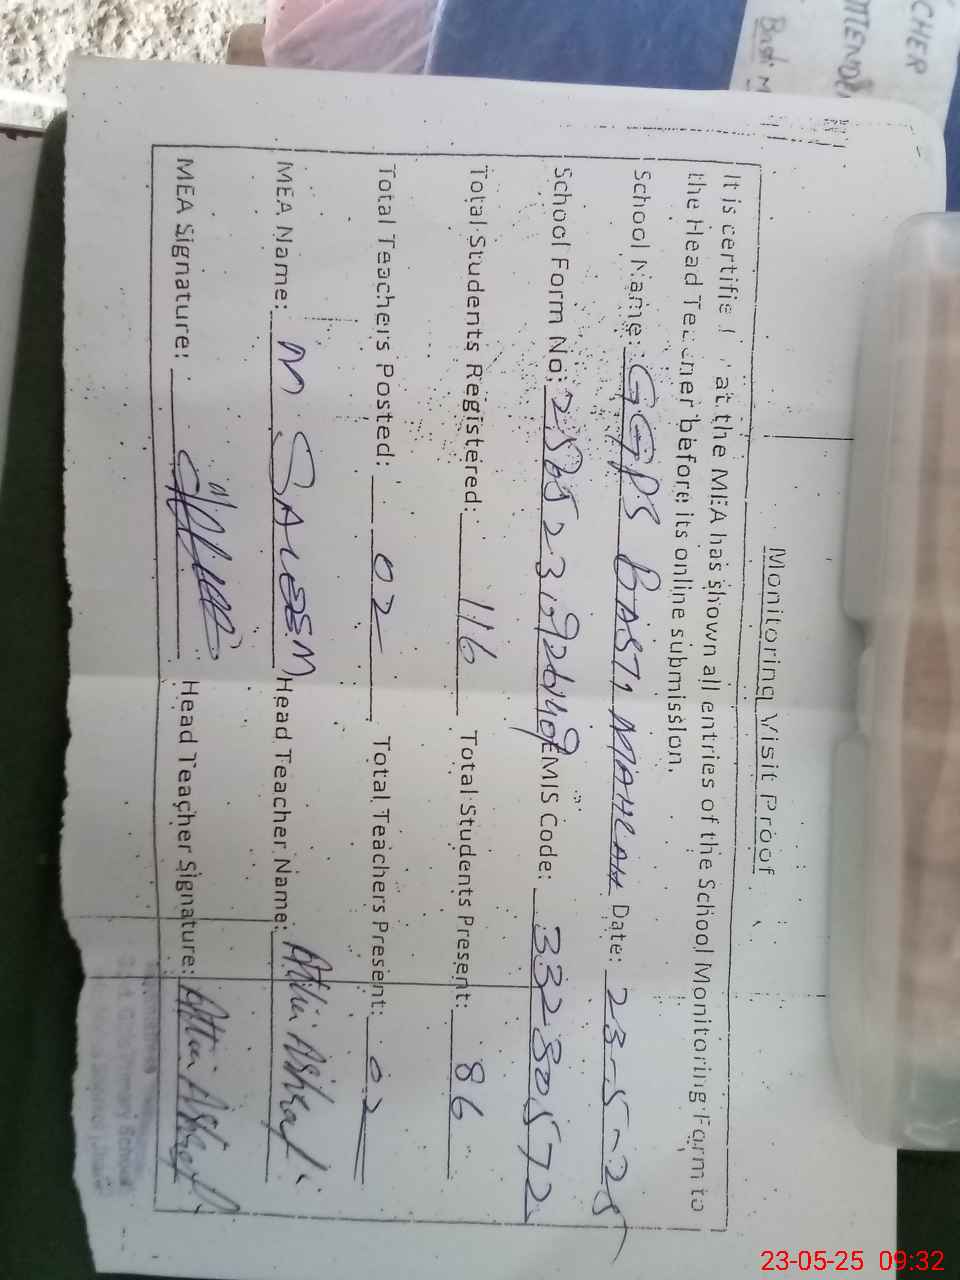 CHER
Monitoring Visit Proof
It is certified that the MEA has shown all entries of the School Monitoring Form to
the Head Teacher before its online submission.
School Name: GGPS BASTI MAHLAH Date: 23-5-25
School Form No: EMIS Code: 33230572
Total Students Registered: 116 Total Students Present: 86
Total Teachers Posted: 02 Total Teachers Present: 02
MEA Name: M SALEEM Head Teacher Name: Ashraf
MEA Signature: Head Teacher Signature: Ashraf
Primary School
23-05-25 09:32